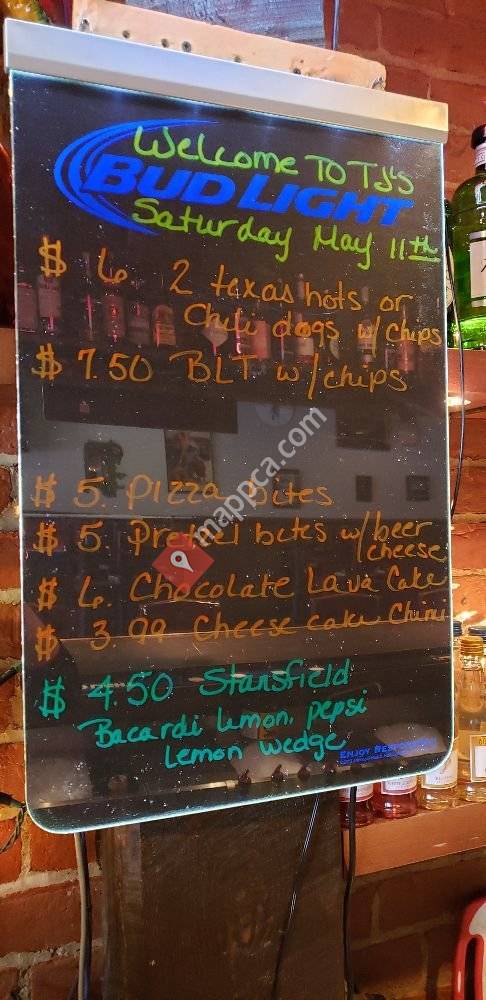 Welcome TO TJ's
BUD LIGHT
Saturday May 11th
$ 6. 2 texas hots or
Chili dogs w/ chips
$ 7.50 BLT w/chips
$ 5. PIZZA bites
$ 5. Pretzel bites w/beer
cheese
$ 6. Chocolate Lava Cake
$ 3.99 Cheese cake Chimi
$ 4.50 Stansfield
Bacardi limon, pepsi
lemon wedge
mappca.com